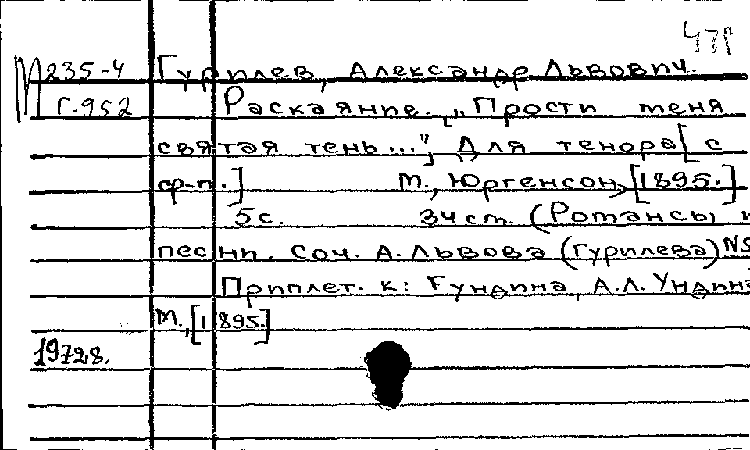 47г
М 235-4 Гурилев, Александр Львович.
Г-952 Раскаяние. „Прости меня
святая тень...", Для тенора [с
ср-п.] М., Юргенсон, [1895.]
5с. 34см. (Романсы и
песни. Соч. А. Львова (Гурилева) №5
Приплет. к: Гундина, А.Л. Ундина
М., [1895.]
19728.